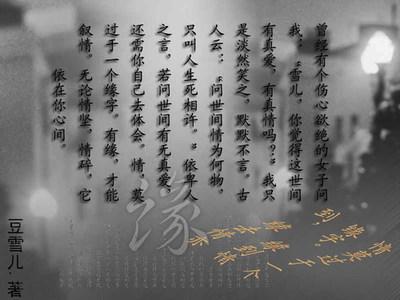 曾经有个伤心欲绝的女子问
我:“雪儿,你觉得这世间
有真爱,有真情吗?”我只
是淡然笑之,默默不言。古
人云:“问世间情为何物,
只叫人生死相许。”依卑人
之言,若问世间有无真爱,
还需你自己去体会。情,莫
过于一个缘字,有缘,才能
叙情。无论情坚,情碎,它
依在你心间。
情莫过于
缘字。
缘
豆雪儿.著